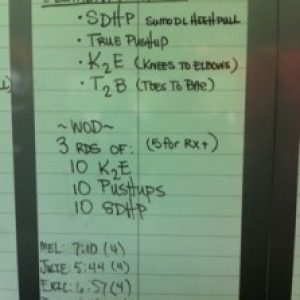 · SDHP (SUMO DL HIGH PULL)
· TRUE PUSHUP
· K2E (KNEES TO ELBOWS)
· T2B (TOES TO BAR)
~WOD~
3 RDS OF: (5 for RX+)
10 K2E
10 PUSHUPS
10 SDHP
MEL: 7:10 (4)
JULIE: 5:44 (4)
ERIC: 6:57 (4)